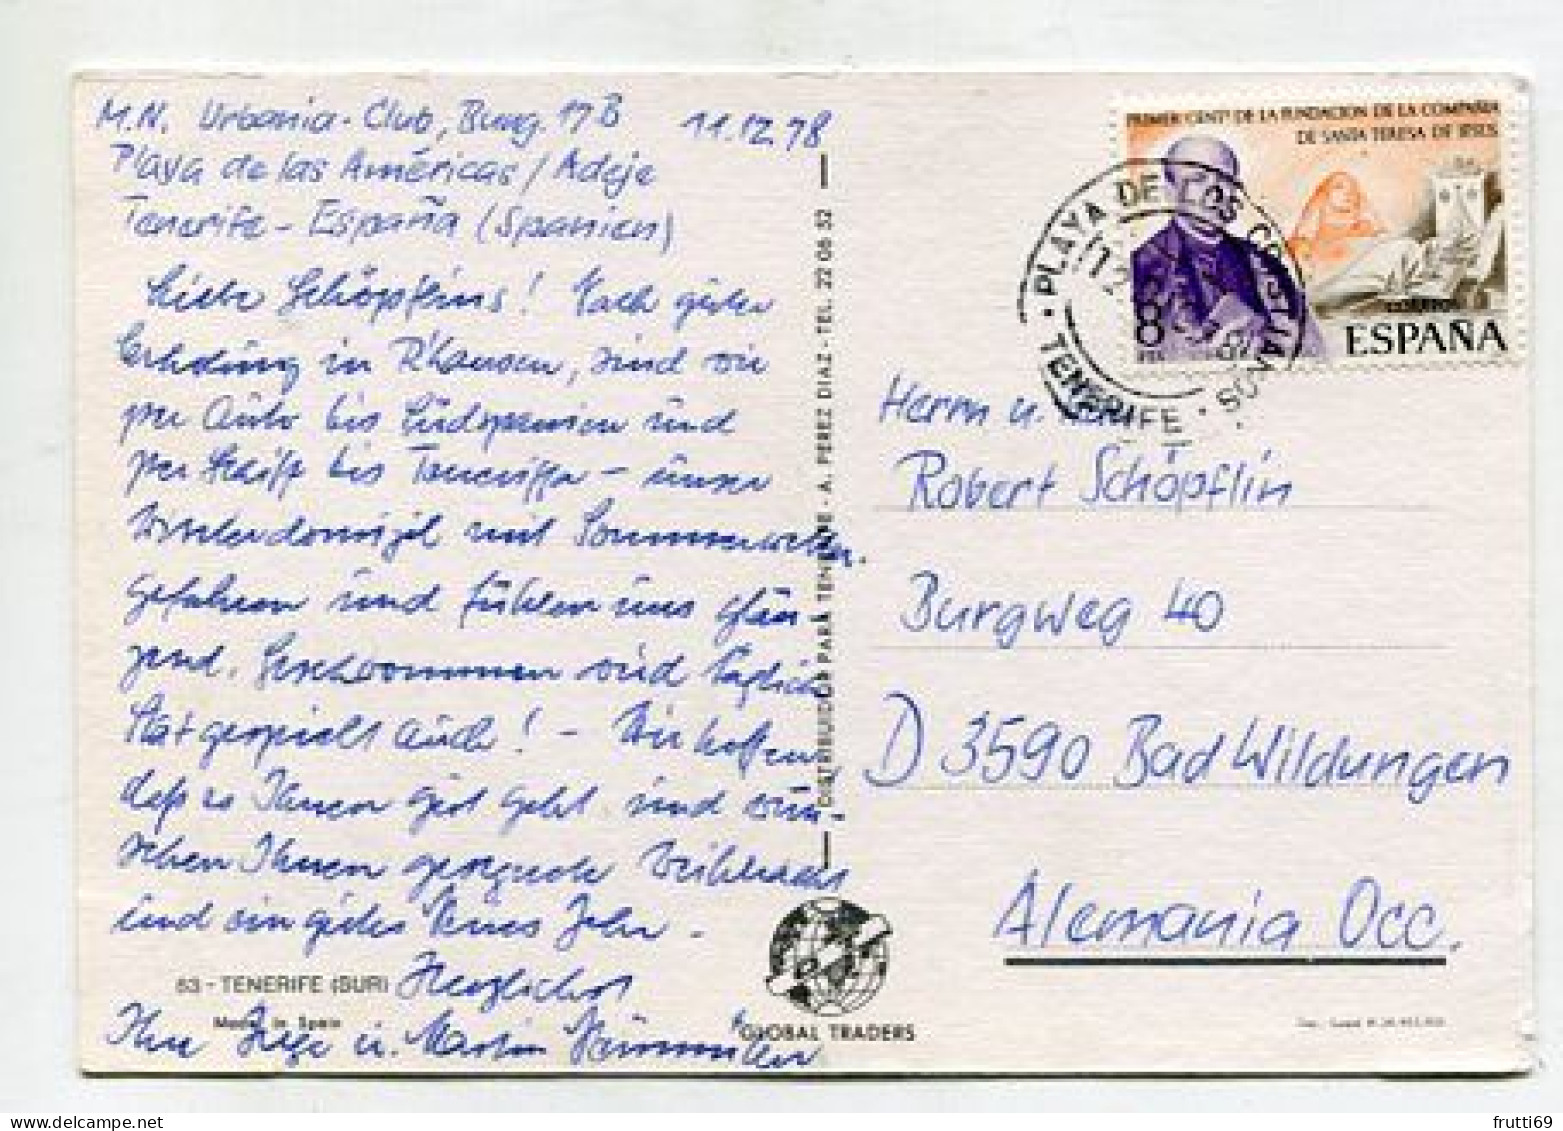 M.N. Urbania-Club, Bung. 17B 11.12.78
Playa de las Américas / Adeje
Tenerife - España (Spanien)
Liebe Schöpflins! Nach guter
Erholung in R'hausen, sind wir
per Auto bis Südspanien und
per Schiff bis Teneriffa - unser
mit Sommerwetter.
gefahren und fühlen uns glän-
zend. Geschwommen wird täglich
gespielt auch! - Wir hoffen
daß es Ihnen gut geht und wün-
schen Ihnen gesegnete Weihnacht
und ein gutes Neues Jahr.
Herzlichst
Ihre u. Martin
63 - TENERIFE (SUR)
Made in Spain
DISTRIBUIDOR PARA TENERIFE - A. PEREZ DIAZ - TEL. 22 06 52
GLOBAL TRADERS
PRIMER CENTº DE LA FUNDACION DE LA COMPAÑIA
DE SANTA TERESA DE JESUS
CORREOS
8 PTA
ESPAÑA
PLAYA DE LOS CRISTIANOS
TENERIFE
Herrn u.
Robert Schöpflin
Burgweg 40
D 3590 Bad Wildungen
Alemania Occ.
frutti69